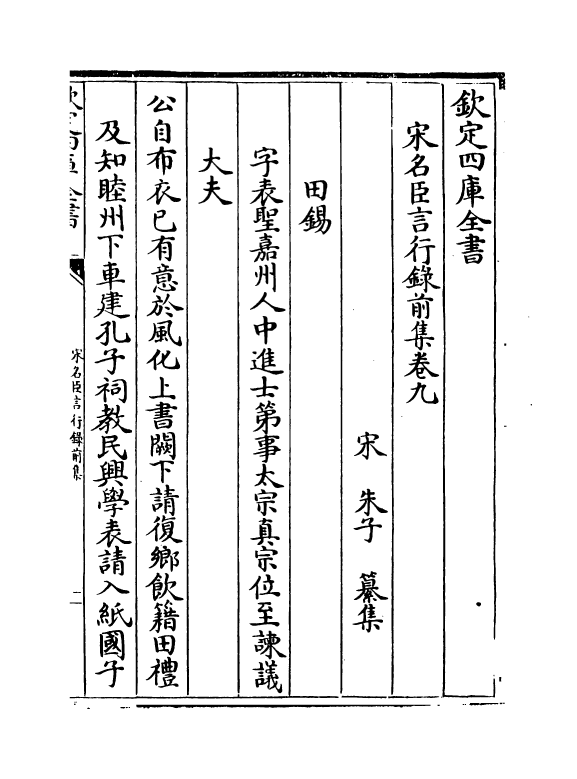 欽定四庫全書
宋名臣言行錄前集卷九
宋 朱子 纂集
田錫
字表聖嘉州人中進士第事太宗真宗位至諫議
大夫
公自布衣已有意於風化上書闕下請復鄉飲籍田禮
及知睦州下車建孔子祠教民興學表請入紙國子
宋名臣言行錄前集